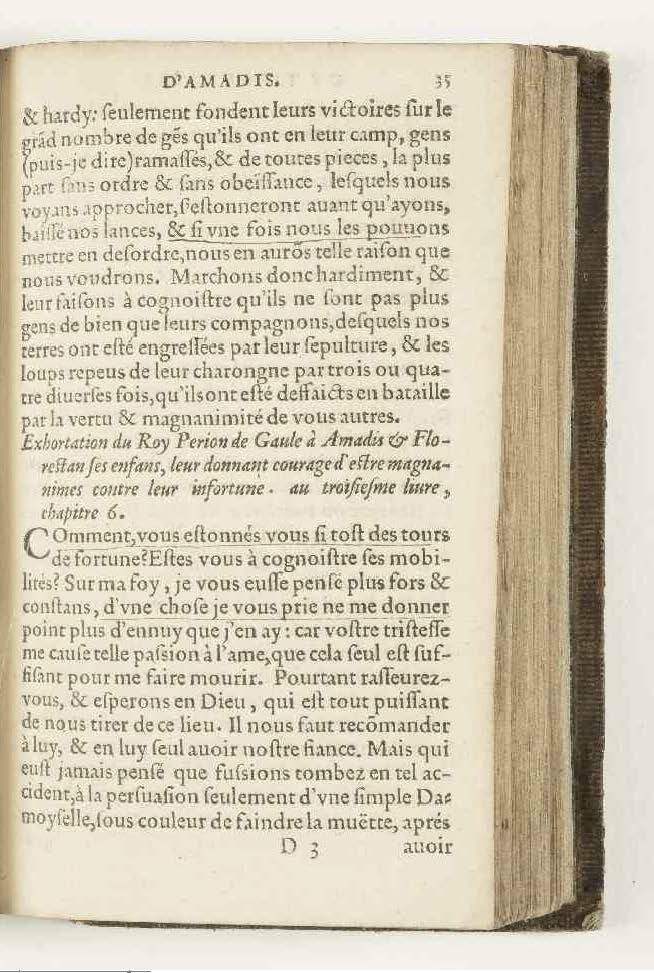 D'AMADIS. 35
& hardy: ſeulement fondent leurs victoires ſur le
grãd nombre de gẽs qu'ils ont en leur camp, gens
(puis-je dire) ramaſſés, & de toutes pieces, la plus
part ſans ordre & ſans obeïſſance, leſquels nous
voyans approcher, ſ'eſtonneront auant qu'ayons,
baiſſé nos lances, & ſi vne fois nous les pouuons
mettre en deſordre, nous en aurõs telle raiſon que
nous voudrons. Marchons donc hardiment, &
leur faiſons à cognoiſtre qu'ils ne ſont pas plus
gens de bien que leurs compagnons, deſquels nos
terres ont eſté engreſſées par leur ſepulture, & les
loups repeus de leur charongne par trois ou qua-
tre diuerſes fois, qu'ils ont eſté deffaicts en bataille
par la vertu & magnanimité de vous autres.
Exhortation du Roy Perion de Gaule à Amadis & Flo-
reſtan ſes enfans, leur donnant courage d'eſtre magna-
nimes contre leur infortune. au troiſieſme liure,
chapitre 6.
COmment, vous eſtonnés vous ſi toſt des tours
de fortune? Eſtes vous à cognoiſtre ſes mobi-
lités? Sur ma foy, je vous euſſe penſé plus fors &
conſtans, d'vne choſe je vous prie ne me donner
point plus d'ennuy que j'en ay: car voſtre triſteſſe
me cauſe telle paſsion à l'ame, que cela ſeul eſt ſuf-
fiſant pour me faire mourir. Pourtant raſſeurez-
vous, & eſperons en Dieu, qui eſt tout puiſſant
de nous tirer de ce lieu. Il nous faut recõmander
à luy, & en luy ſeul auoir noſtre fiance. Mais qui
euſt jamais penſé que fuſsions tombez en tel ac-
cident, à la perſuaſion ſeulement d'vne ſimple Da-
moyſelle, ſous couleur de faindre la muëtte, aprés
D 3 auoir